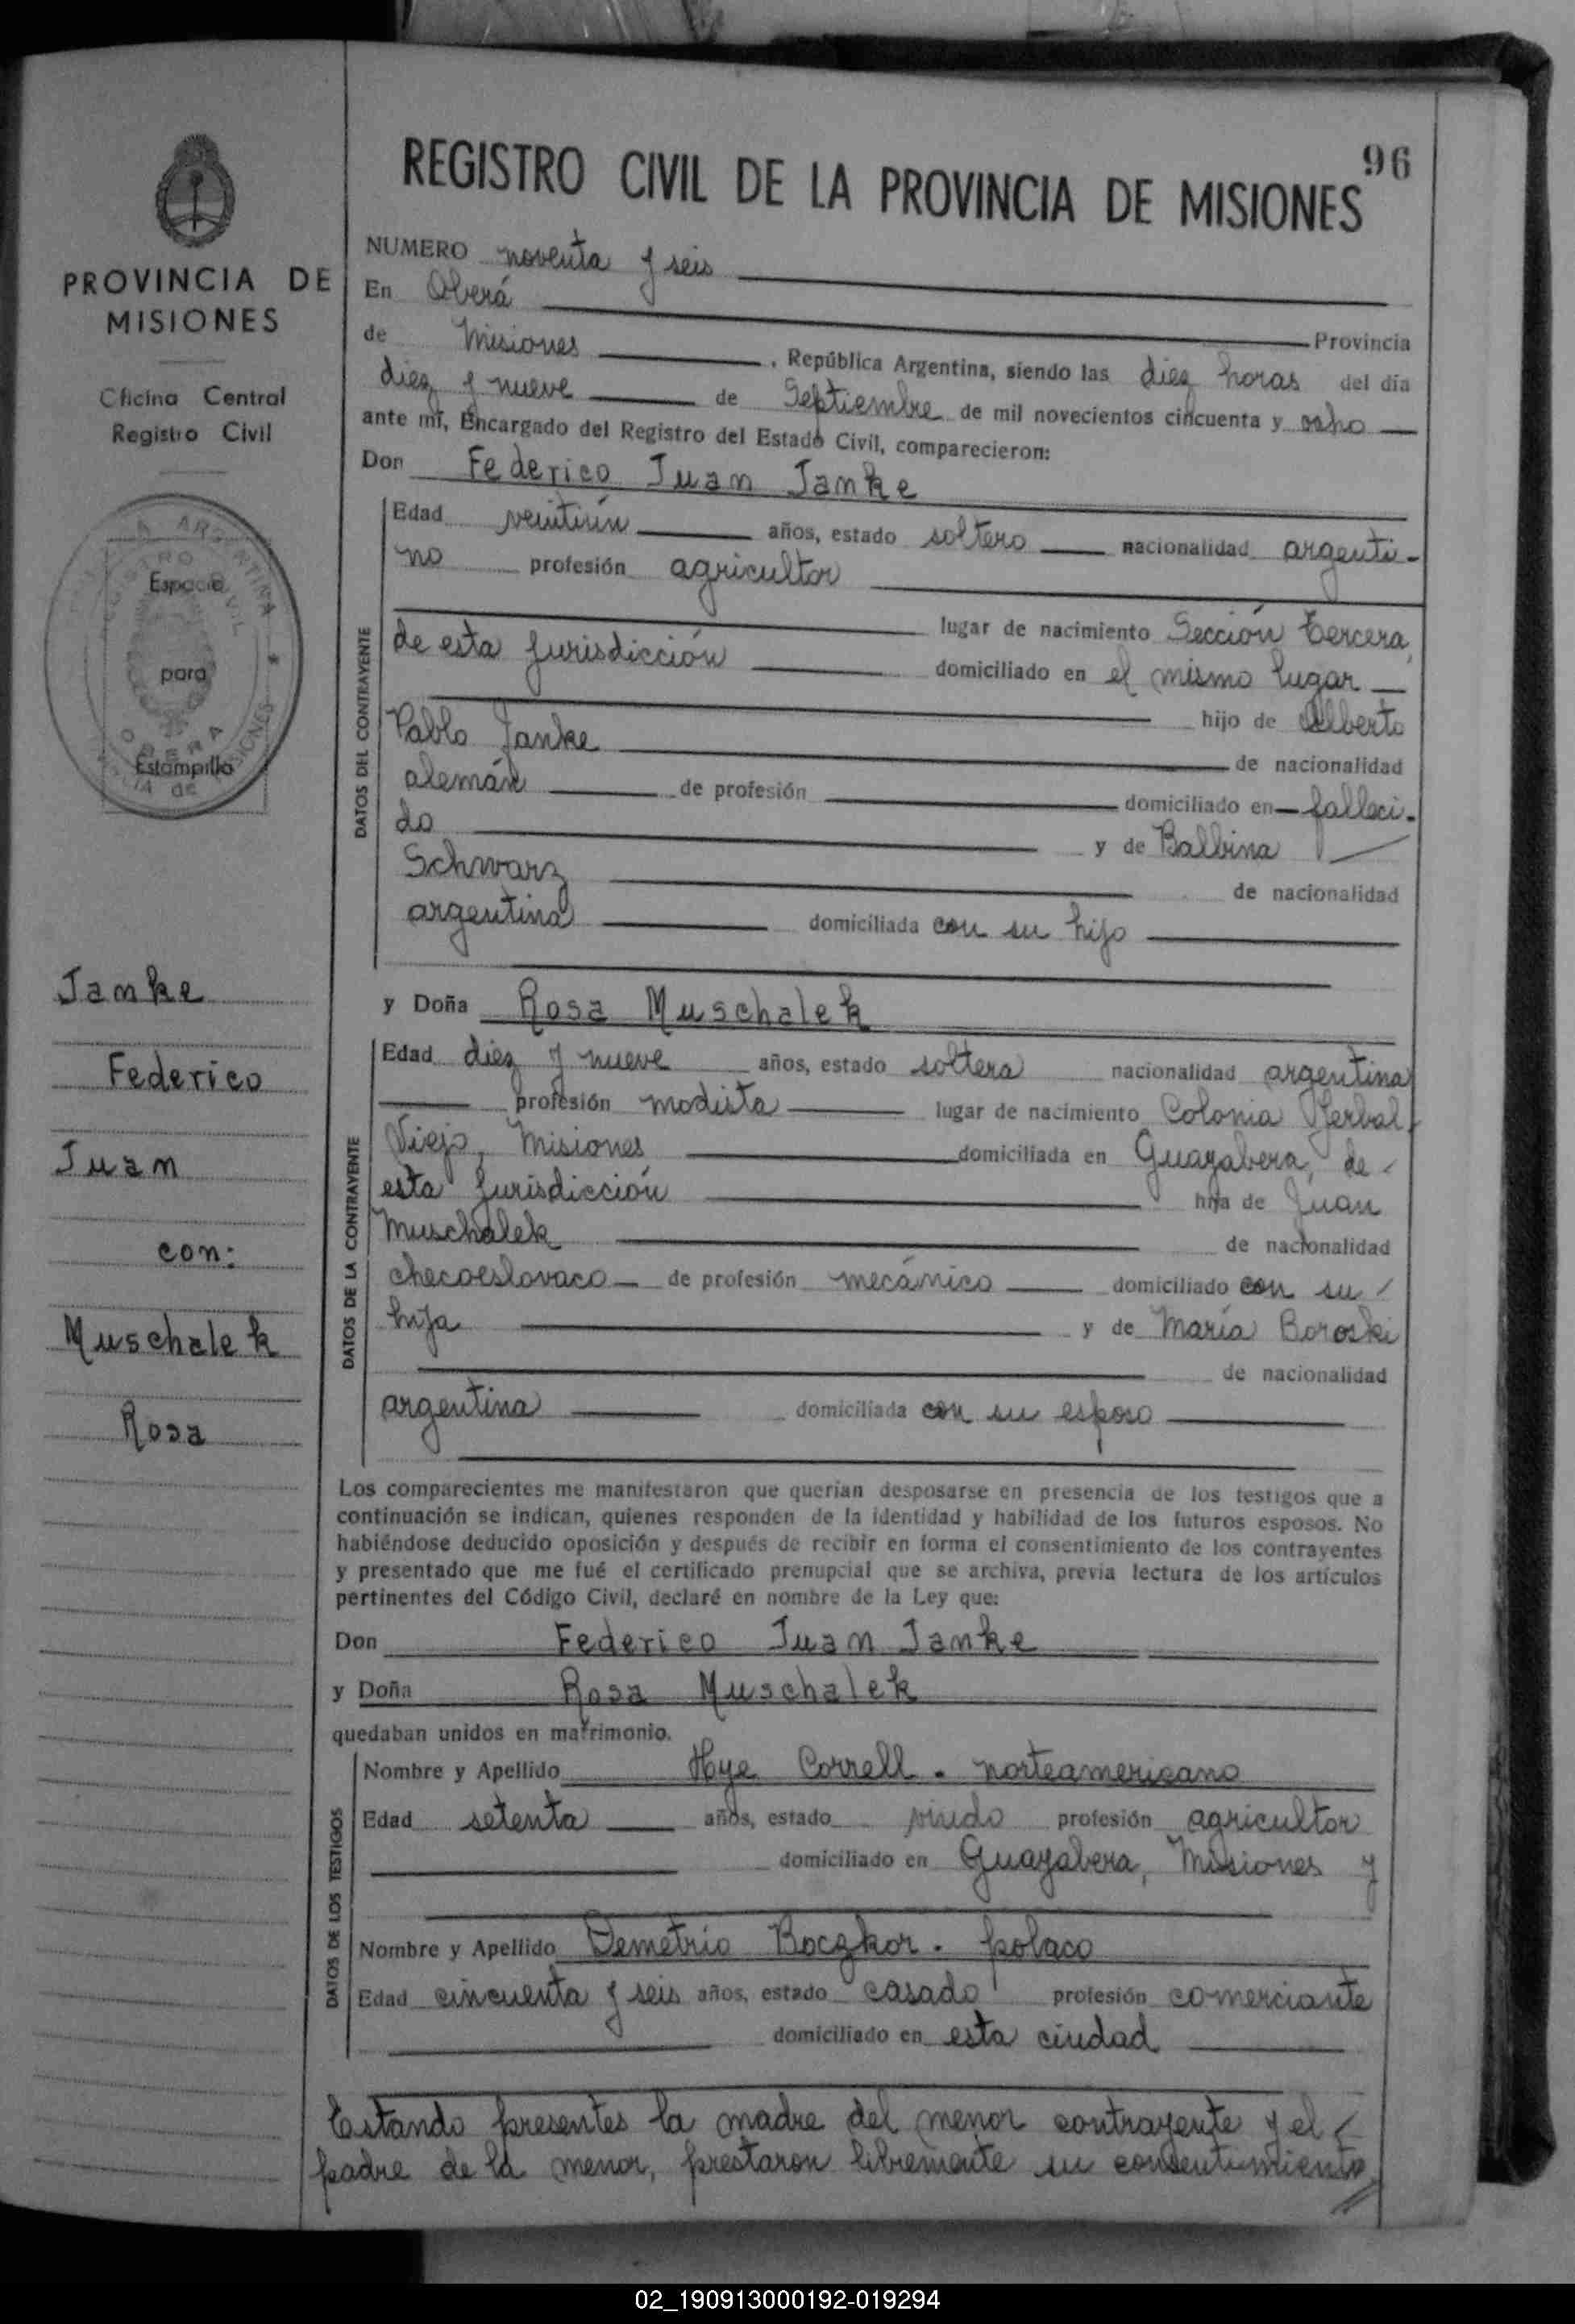 96
REGISTRO CIVIL DE LA PROVINCIA DE MISIONES
PROVINCIA DE
MISIONES
Oficina Central
Registro Civil
Espacio
para
Estampilla
Janke
Federico
Juan
con:
Muschalek
Rosa
NUMERO noventa y seis
En Oberá
Provincia
de Misiones , República Argentina, siendo las diez horas del día
diez y nueve de Septiembre de mil novecientos cincuenta y ocho
ante mí, Encargado del Registro del Estado Civil, comparecieron:
Don Federico Juan Janke
DATOS DEL CONTRAYENTE
Edad veintiún años, estado soltero nacionalidad argenti-
no profesión agricultor
lugar de nacimiento Sección Tercera,
de esta jurisdicción domiciliado en el mismo lugar
hijo de Alberto
Pablo Janke
de nacionalidad
alemán de profesión domiciliado en falleci-
do y de Balbina
Schwarz
de nacionalidad
argentina domiciliada con su hijo
y Doña Rosa Muschalek
DATOS DE LA CONTRAYENTE
Edad diez y nueve años, estado soltera nacionalidad argentina
profesión modista lugar de nacimiento Colonia Yerbal
Viejo, Misiones domiciliada en Guayabera, de
esta jurisdicción hija de Juan
Muschalek de nacionalidad
checoeslovaco de profesión mecánico domiciliado con su
hija y de María Boroski
de nacionalidad
argentina domiciliada con su esposo
Los comparecientes me manifestaron que querían desposarse en presencia de los testigos que a
continuación se indican, quienes responden de la identidad y habilidad de los futuros esposos. No
habiéndose deducido oposición y después de recibir en forma el consentimiento de los contrayentes
y presentado que me fué el certificado prenupcial que se archiva, previa lectura de los artículos
pertinentes del Código Civil, declaré en nombre de la Ley que:
Don Federico Juan Janke
y Doña Rosa Muschalek
quedaban unidos en matrimonio.
DATOS DE LOS TESTIGOS
Nombre y Apellido Hye Correll . norteamericano
Edad setenta años, estado viudo profesión agricultor
domiciliado en Guayabera, Misiones y
Nombre y Apellido Demetrio Boczkor . polaco
Edad cincuenta y seis años, estado casado profesión comerciante
domiciliado en esta ciudad
Estando presentes la madre del menor contrayente y el
padre de la menor, prestaron libremente su consentimiento,
02_190913000192-019294